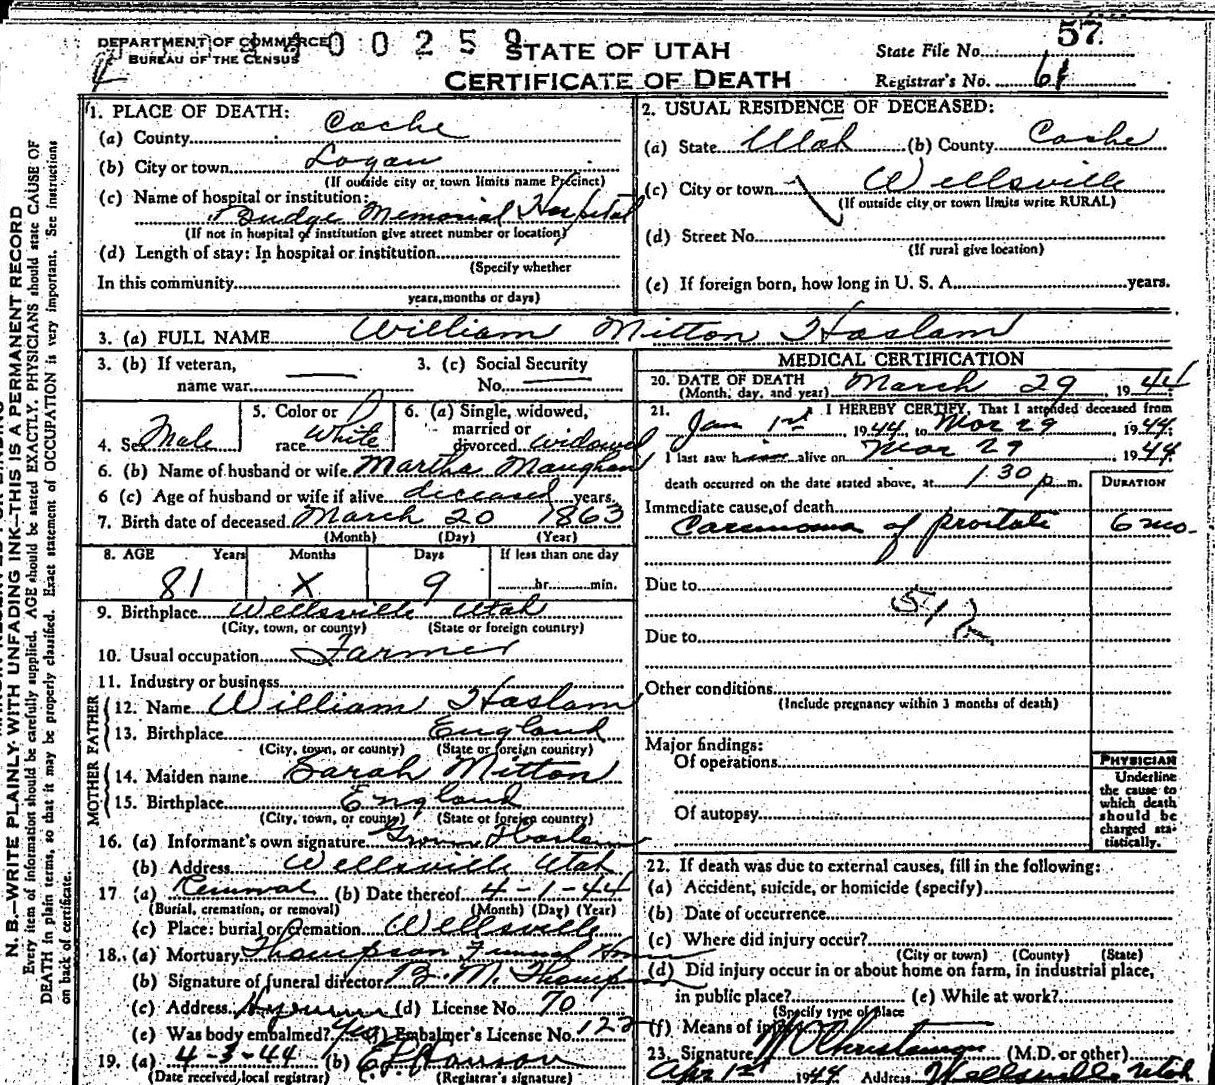 DEPARTMENT OF COMMERCE
BUREAU OF THE CENSUS
00259
STATE OF UTAH
CERTIFICATE OF DEATH
State File No. 57
Registrar's No. 61
N. B.—WRITE PLAINLY WITH UNFADING INK—THIS IS A PERMANENT RECORD
Every item of information should be carefully supplied. AGE should be stated EXACTLY. PHYSICIANS should state CAUSE OF
DEATH in plain terms, so that it may be properly classified. Exact statement of OCCUPATION is very important. See instructions
on back of certificate.
1. PLACE OF DEATH:
(a) County Cache
(b) City or town Logan
(If outside city or town limits name Precinct)
(c) Name of hospital or institution:
Budge Memorial Hospital
(If not in hospital or institution give street number or location)
(d) Length of stay: In hospital or institution
(Specify whether
In this community
years, months or days)
2. USUAL RESIDENCE OF DECEASED:
(a) State Utah (b) County Cache
(c) City or town Wellsville
(If outside city or town limits write RURAL)
(d) Street No.
(If rural give location)
(e) If foreign born, how long in U. S. A. years.
3. (a) FULL NAME William Mitton Haslam
3. (b) If veteran,
name war
3. (c) Social Security
No.
4. Sex Male
5. Color or
race White
6. (a) Single, widowed,
married or
divorced widowed
6. (b) Name of husband or wife Martha Maughan
6 (c) Age of husband or wife if alive deceased years.
7. Birth date of deceased March 20 1863
(Month) (Day) (Year)
8. AGE Years Months Days If less than one day
81 X 9 hr. min.
9. Birthplace Wellsville Utah
(City, town, or county) (State or foreign country)
10. Usual occupation Farmer
11. Industry or business
FATHER
12. Name William Haslam
13. Birthplace England
(City, town, or county) (State or foreign country)
MOTHER
14. Maiden name Sarah Mitton
15. Birthplace England
(City, town, or county) (State or foreign country)
16. (a) Informant's own signature Haslam
(b) Address Wellsville Utah
17 (a) Removal (b) Date thereof 4-1-44
(Burial, cremation, or removal) (Month) (Day) (Year)
(c) Place: burial or cremation Wellsville
18. (a) Mortuary Thompson Funeral Home
(b) Signature of funeral director B. M. Thompson
(c) Address Hyrum (d) License No. 70
(e) Was body embalmed? Yes (f) Embalmer's License No. 122
19. (a) 4-3-44 (b)
(Date received local registrar) (Registrar's signature)
MEDICAL CERTIFICATION
20. DATE OF DEATH March 29 1944
(Month, day, and year)
21. I HEREBY CERTIFY, That I attended deceased from
Jan 1st 1944 to Mar 29 1944
I last saw him alive on Mar 29 1944
death occurred on the date stated above, at 1 30 p m.
DURATION
Immediate cause of death
Carcinoma of prostate 6 mo.
Due to
51
Due to
Other conditions
(Include pregnancy within 3 months of death)
Major findings:
Of operations
Of autopsy
PHYSICIAN
Underline
the cause to
which death
should be
charged sta-
tistically.
22. If death was due to external causes, fill in the following:
(a) Accident, suicide, or homicide (specify)
(b) Date of occurrence
(c) Where did injury occur?
(City or town) (County) (State)
(d) Did injury occur in or about home on farm, in industrial place,
in public place? (e) While at work?
(Specify type of place
(f) Means of injury
23. Signature (M.D. or other)
Apr 1st 1944 Address Wellsville Utah